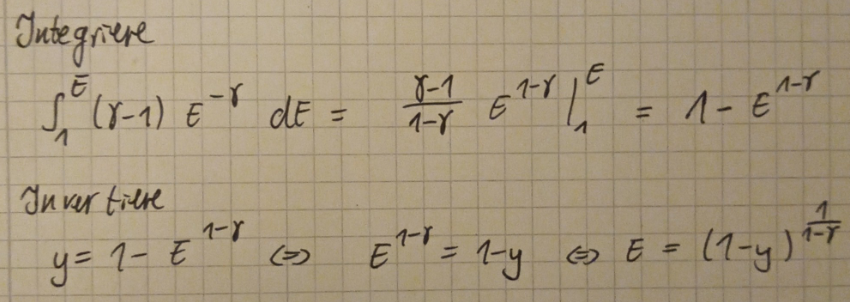 Integriere
∫₁ᴱ (γ-1) E^{-γ} dE = \frac{γ-1}{1-γ} E^{1-γ} |₁ᴱ = 1 - E^{1-γ}
Invertiere
y = 1 - E^{1-γ} ⇔ E^{1-γ} = 1-y ⇔ E = (1-y)^{\frac{1}{1-γ}}